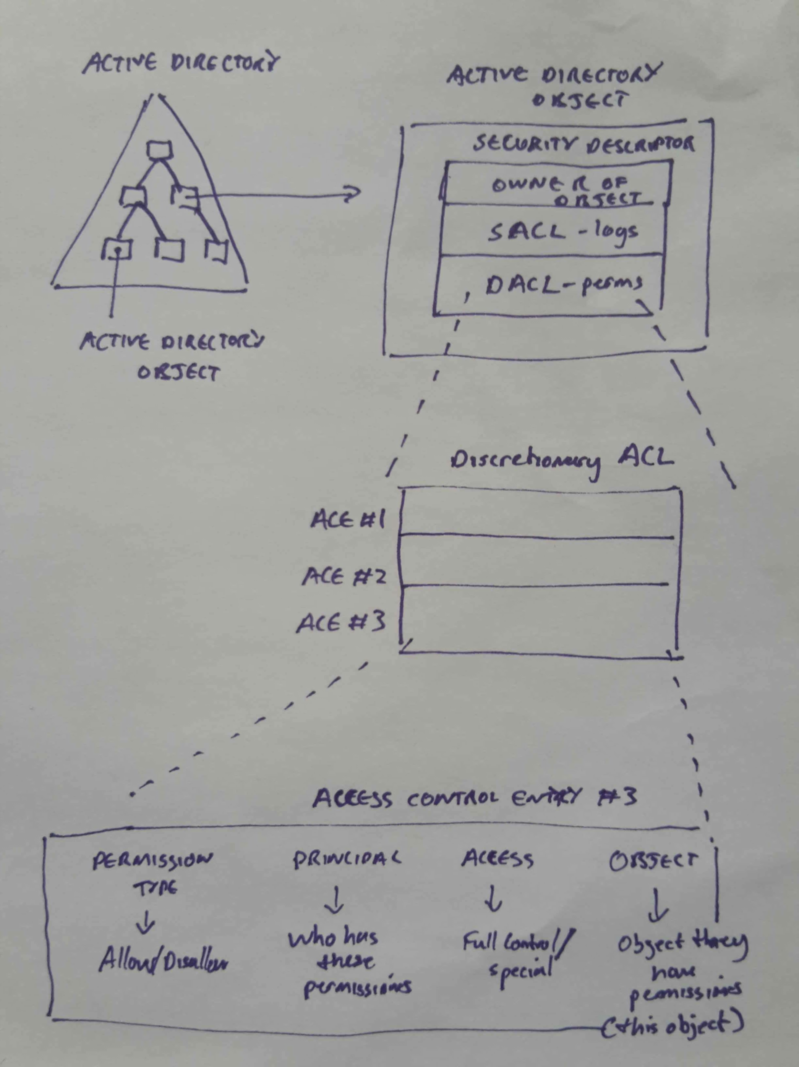 ACTIVE DIRECTORY
ACTIVE DIRECTORY
OBJECT
ACTIVE DIRECTORY
OBJECT
SECURITY DESCRIPTOR
OWNER OF
OBJECT
SACL - logs
DACL - perms
Discretionary ACL
ACE #1
ACE #2
ACE #3
ACCESS CONTROL ENTRY #3
PERMISSION
TYPE
Allow/Disallow
PRINCIPAL
Who has
these
permissions
ACCESS
Full Control/
special
OBJECT
Object they
have
permissions
(this object)